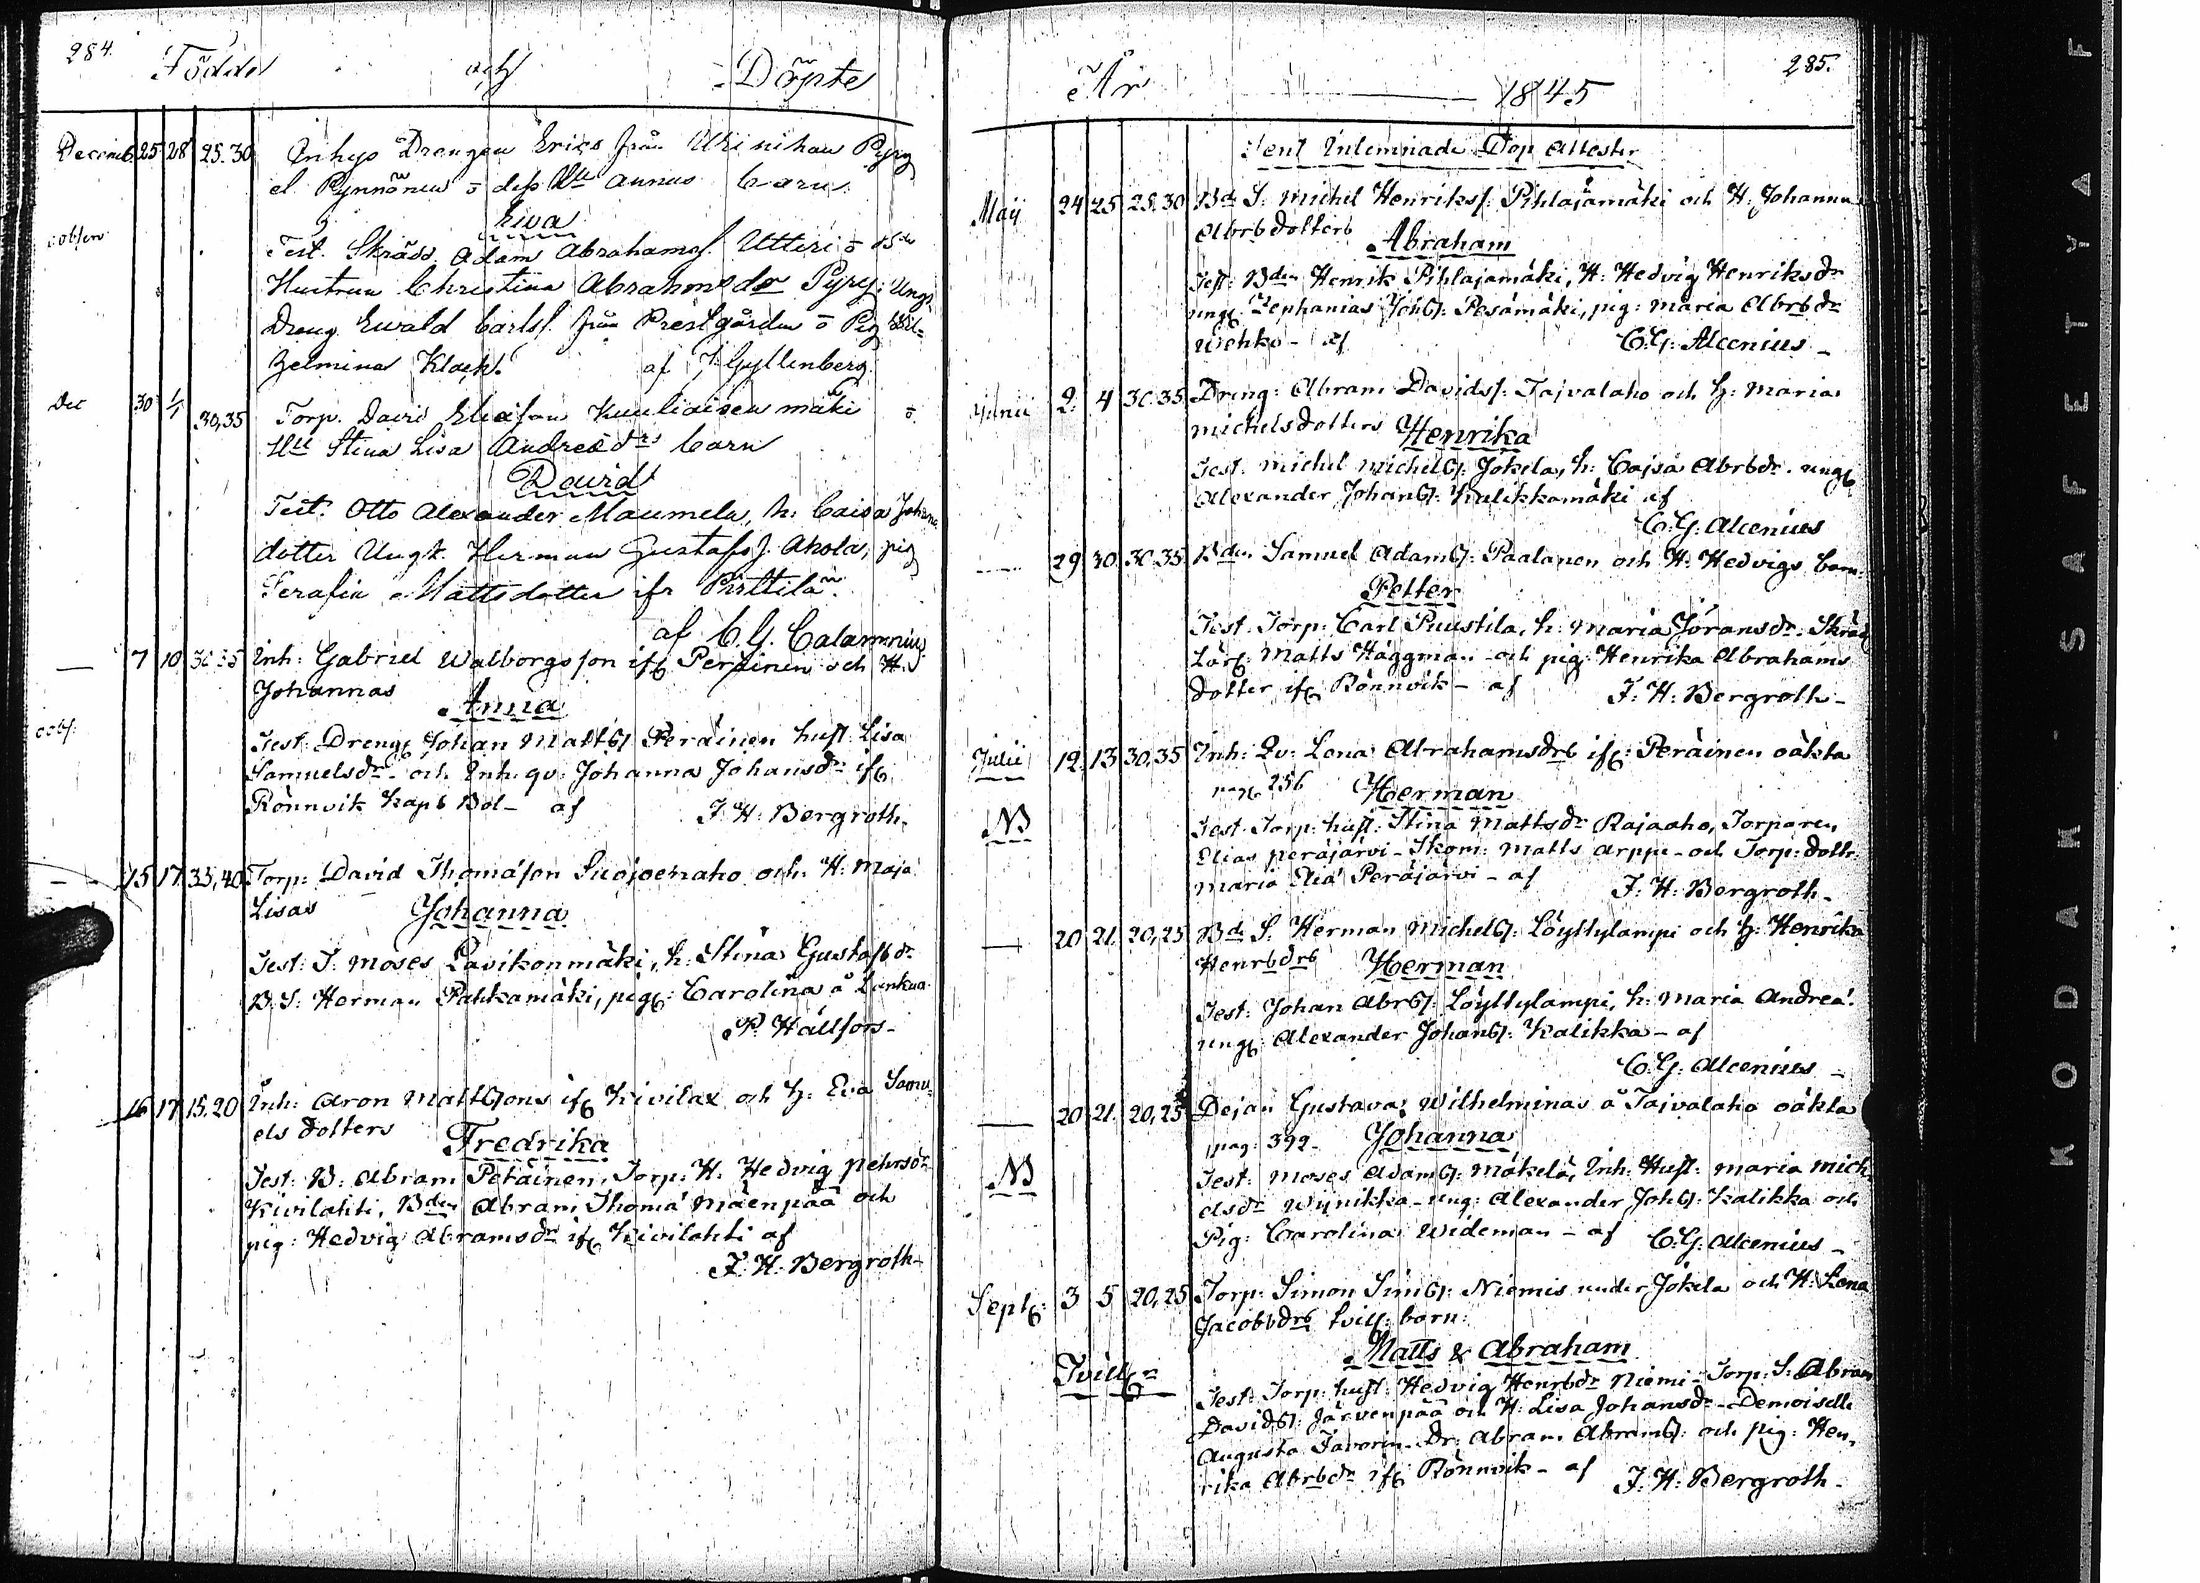 284.
Födde och Döpte
Decemb 25 28 25.30 Inhys Drengen Erics från Pyry
el. Pynnönen o dess Hu Annas barn
Eiva
Test. Skrädd. Adam Abrahamss. Utteri o dess
Hustrun Christina Abrahmsdr Pyry: Ungk.
Dreng. Ewald Carlss. från Prestgården o Pig Wil-
helmina af J. Gyllenberg.
Dec 30 1/1 30,35 Torp. David Eliasson mäki o
Hu Stina Lisa Andreædrs barn
David
Test. Otto Alexander Maumela, h. Caisa Johans
dotter Ungk. Herman Gustafss. Ahola, pig
Serafia Mattsdotter ifr Pirttilä.
af C. G. Calamnius
7 10 30 35 Inh: Gabriel Walborgsson ifr Peräinen och H.
Johannas Anna
Test: Dreng Johan Mattss Peräinen hust. Lisa
Samuelsdr och Inh. qv. Johanna Johansdr ifr
Rönnvik Kapb Bol- af F. H: Bergroth-
15 17 35,40 Torp: David Thomasson Suojoenaho och H: Maja
Lisas Johanna
Test: T. Moses Lavikonmäki, h. Stina Gustafsdr
B.S: Herman Pahkamäki, pig: Carolina å
P. Hällfors-
16 17 15.20 Inh: Aron Mattssons ifr Kivilax och h: Eva Samu-
els dotters Fredrika
Test: B: Abram Petäinen, Torp: H. Hedvig Pehrsdr
Kivilahti, Bden Abram Thomæ Mäenpää och
pig: Hedvig Abramsdr ifr Kivilahti af
F. H: Bergroth-
285.
År 1845
Sent Inlemnade Dop Attester
Maij 24 25 25.30 Bde S: Michel Henrikss: Pihlajamäki och H. Johanna
Abrbdotters Abraham
Test: Bden Henrik Pihlajamäki, H: Hedvig Henriksdr
ung: Zephanias Johss: Pesämäki, pig: Maria Abrbdr
Wehko- af C. G: Alcenius-
Junii 2 4 30.35 Dreng: Abram Davidss: Taivalaho och h: Maria
Michelsdotters Henrika
Test: Michel Michelss: Jokela, h: Cajsa Abrbdr. ung
Alexander Johanss: Kalikkamäki af
C. G: Alcenius
29 30 30.35 Bden Samuel Adamss: Paalanen och H. Hedvigs barn
Petter
Test. Torp: Carl Puustila, h: Maria Jöransdr: Skräd
Lärl: Matts Häggman och pig: Henrika Abrahams
dotter ifr Rönnvik- af F. H: Bergroth-
Julii 12 13 30,35 Inh: Qv: Lena Abrahamsdrs ifr: Peräinen oäkta
pag 256 Herman
NB
Test. Torp: hust: Stina Mattsdr Rajaaho, Torparen
Elias Peräjärvi- Skom: Matts Arppe- och Torp: dottr
Maria Peräjärvi- af F. H: Bergroth-
20 21 20,25 Bde S. Herman Michelss: Löyttylampi och h: Henrika
Henrbdrs Herman
Test: Johan Abrss: Löyttylampi, h: Maria Andreæ.
ung: Alexander Johanss: Kalikka- af
C. G: Alcenius-
20 21 20,25 Dejan Gustava Wilhelminas å Taivalaho oäkta
pag: 392- Johanna
NB
Test: Moses Adamss: Mäkelä, Inh: Hust: Maria Mich
elsdr Wynikka- ung: Alexander Johss: Kalikka och
Pig: Carolina Wideman- af C. G: Alcenius-
Sept: 3 5 20,25 Torp: Simon Simss: Niemis under Jokela och H: Lena
Jacobbdrs tvill: barn:
Matts & Abraham
Tvill:
Test: Torp: hust: Hedvig Henrbdr Niemi- Torp: S: Abram
Davidss: Järvenpää och H: Lisa Johansdr- Demoiselle
Augusta Favorin- Dr: Abram Abramss: och pig: Hen-
rika Abrbdr ifr Rönnvik- af F. H: Bergroth-
KODAK · SAFETY A F